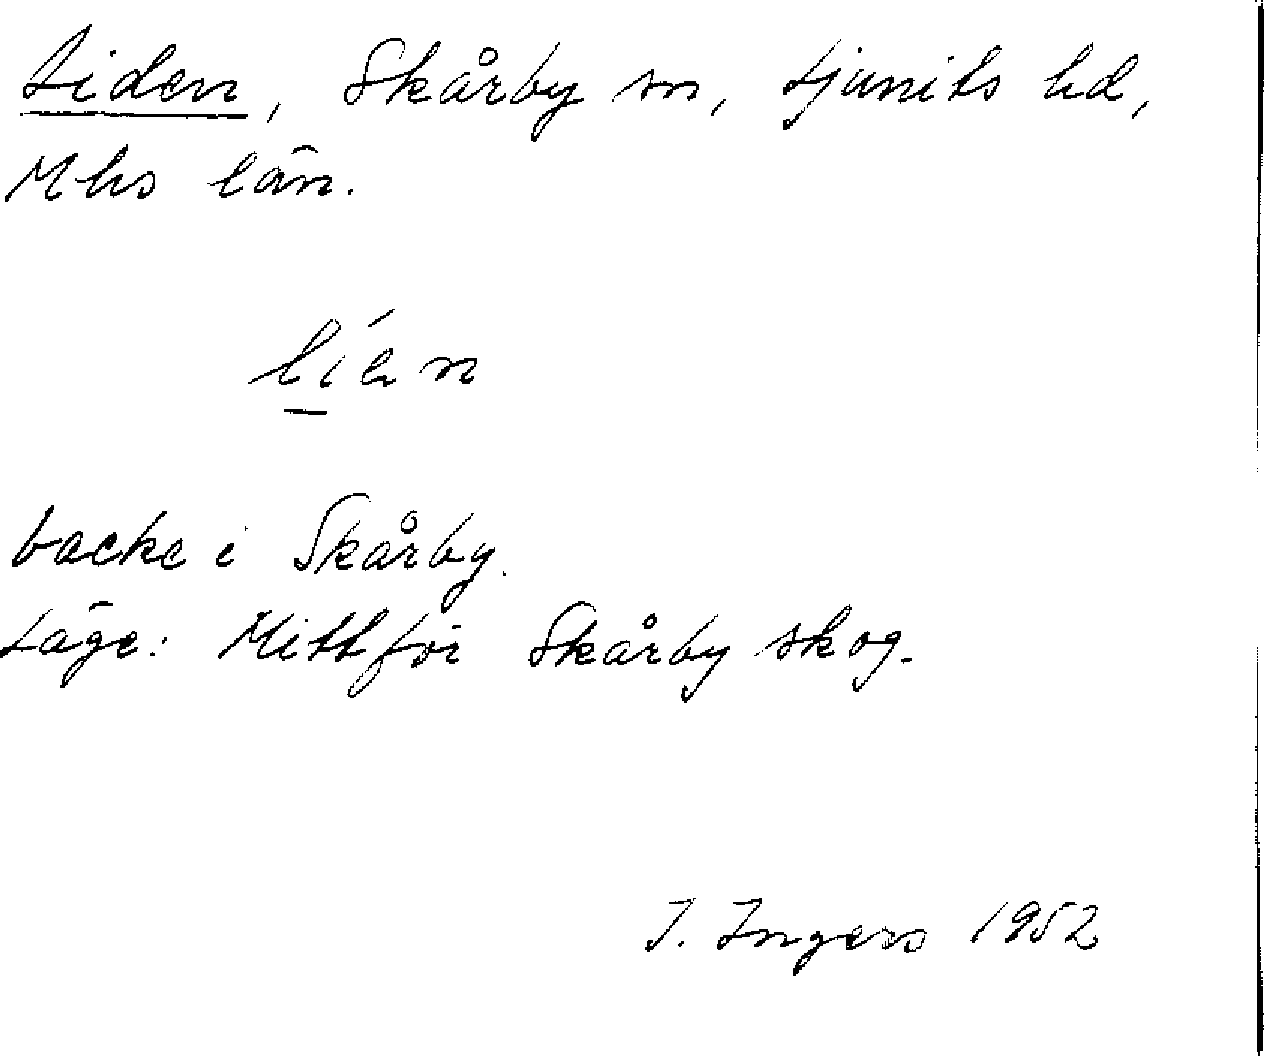 Liden, Skårby sn, Ljunits hd,
Mhs län.
líən
backe i Skårby.
Läge: Mitt för Skårby skog.
I. Ingers 1952